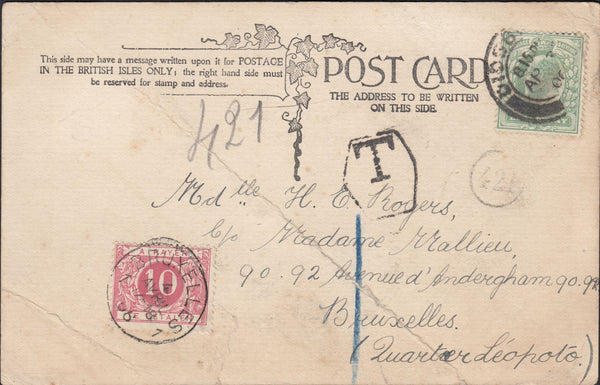 This side may have a message written upon it for POSTAGE
IN THE BRITISH ISLES ONLY; the right hand side must
be reserved for stamp and address.
POST CARD
THE ADDRESS TO BE WRITTEN
ON THIS SIDE.
421
T
Mdlle H. E. Rogers,
c/o Madame Mallieu,
90.92 Avenue d'Andergham 90.92
Bruxelles.
(Quartier Léopoto).
A PAYER
10
BRUXELLES